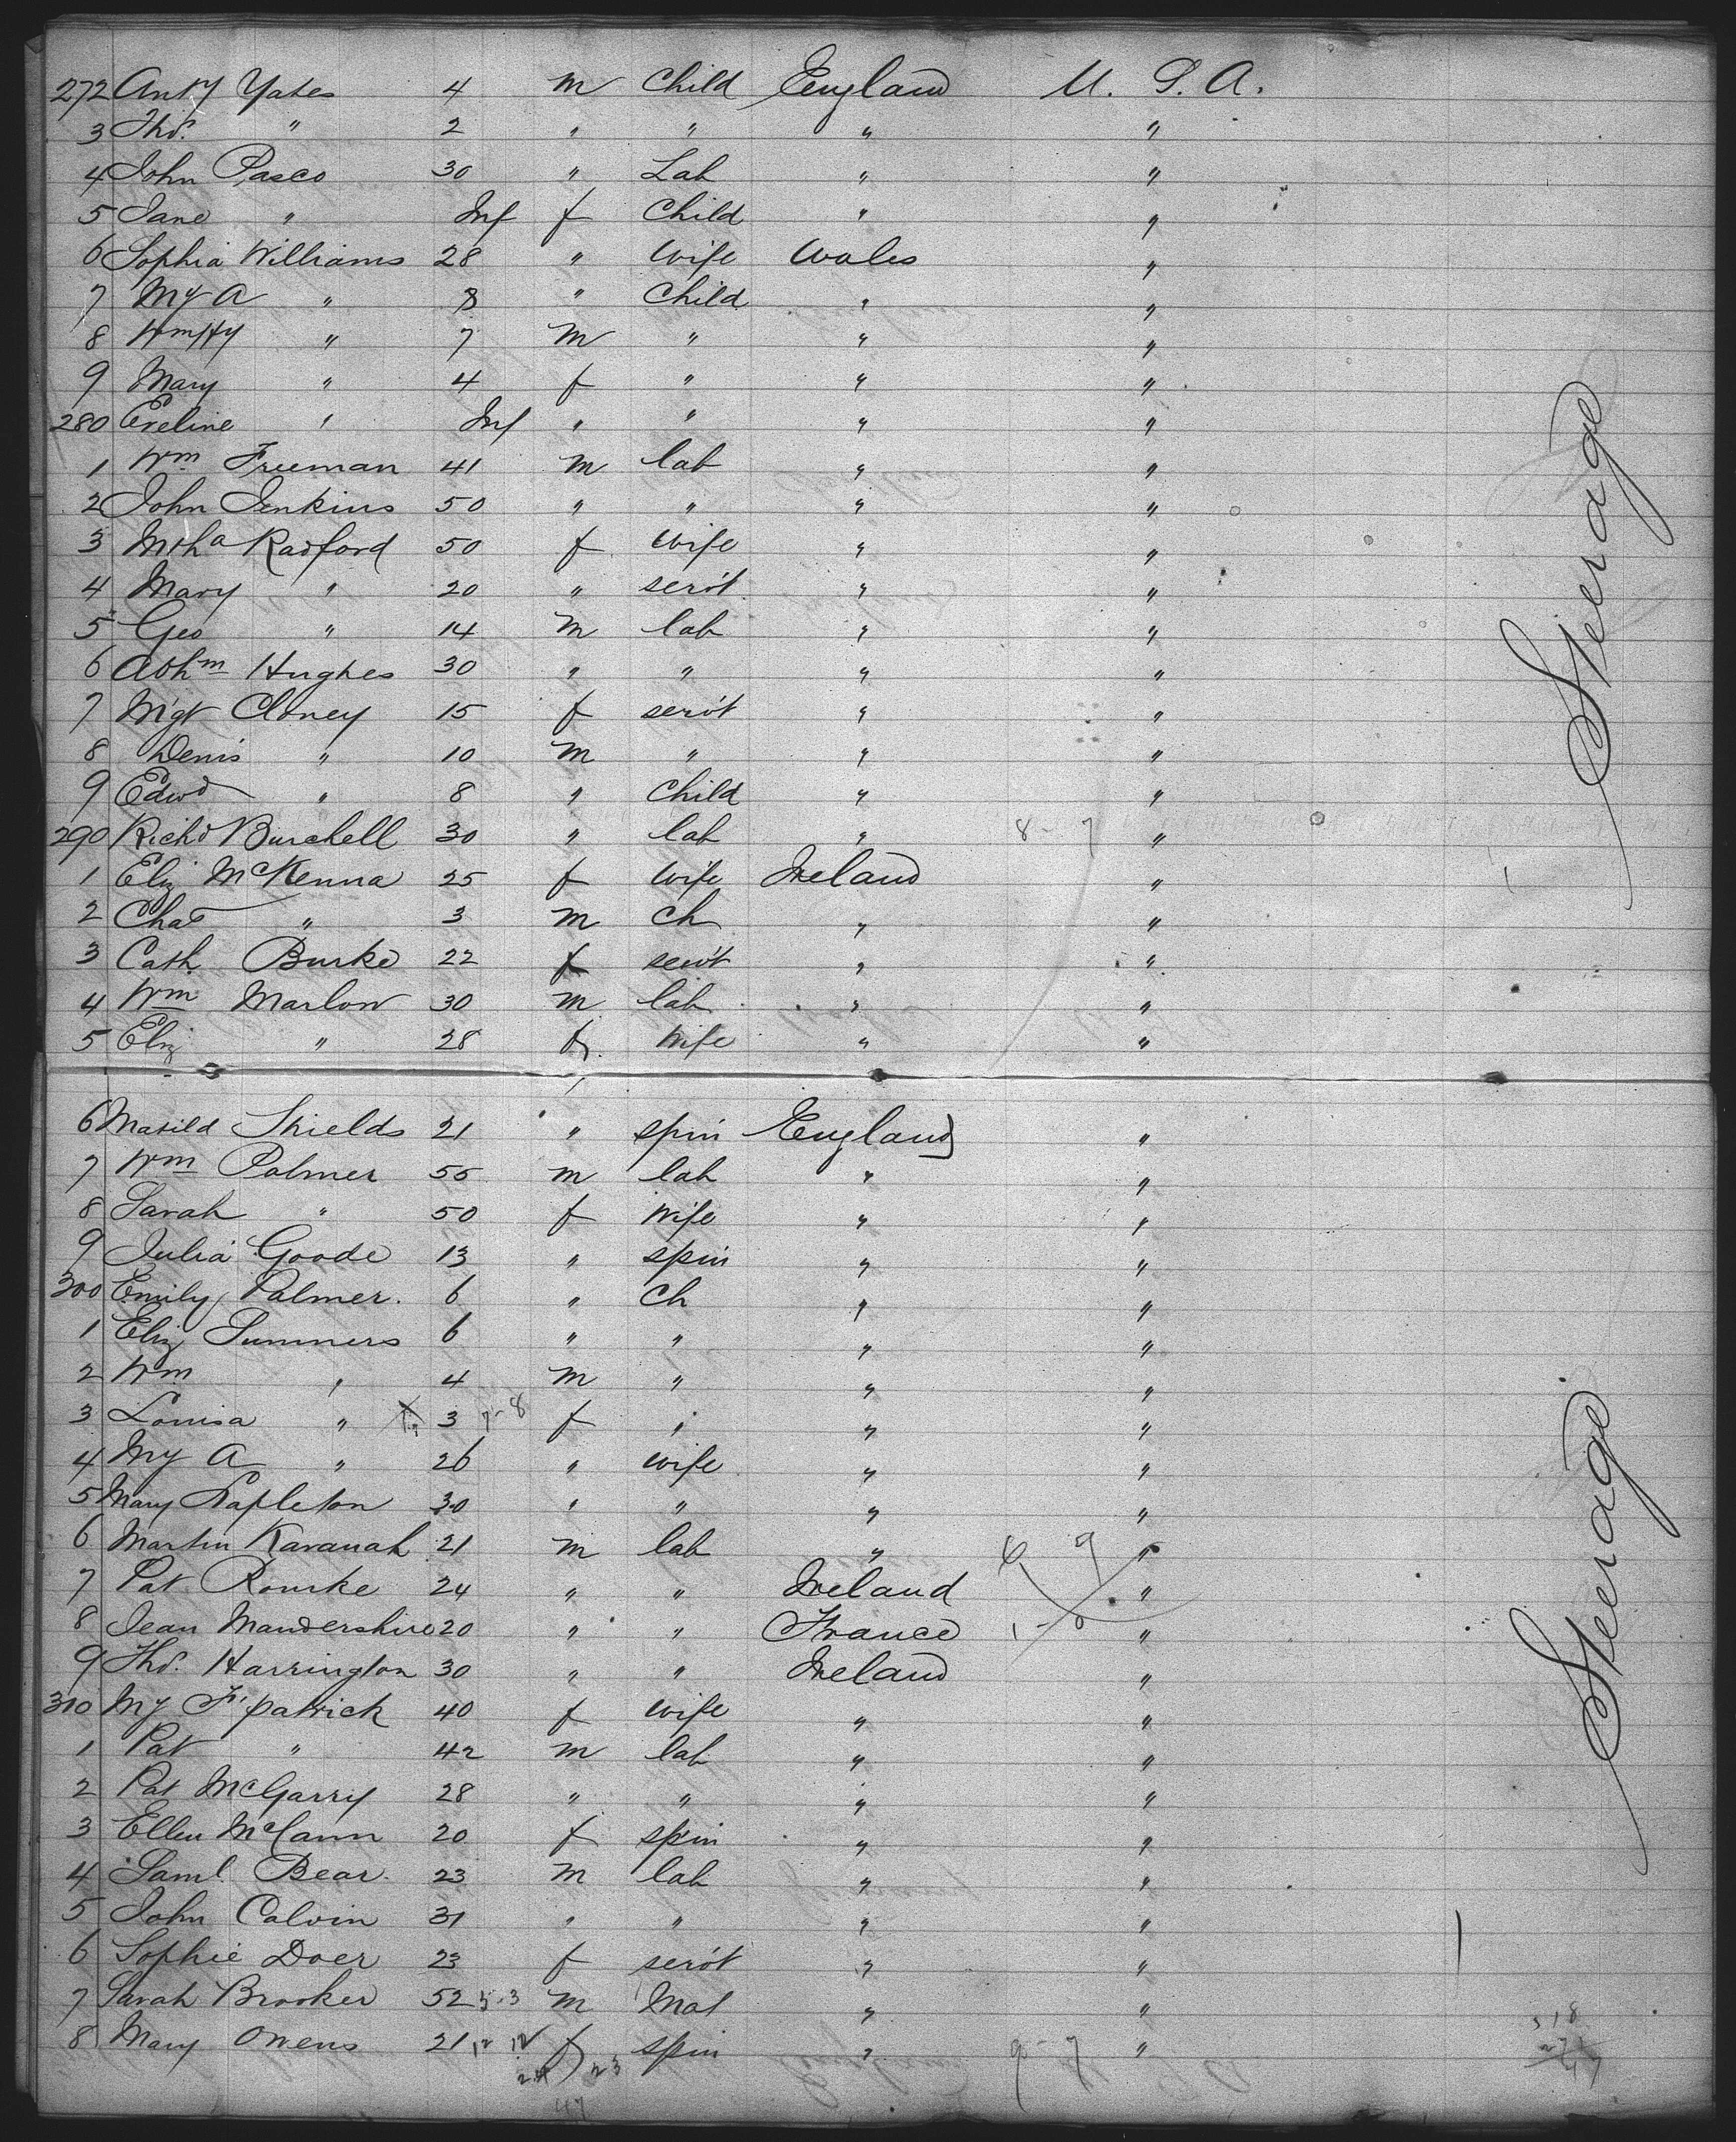 272 Anty Yates 4 m Child England U. S. A.
3 Thos. " 2 " " " "
4 John Pasco 30 " Lab " "
5 Jane " Inf f Child " "
6 Sophia Williams 28 " Wife Wales "
7 My A " 8 " Child " "
8 Wm Hy " 7 m " " "
9 Mary " 4 f " " "
280 Eveline " Inf " " " "
1 Wm Freeman 41 m lab " "
2 John Jenkins 50 " " " "
3 Mtha Radford 50 f Wife " "
4 Mary " 20 " servt " "
5 Geo " 14 m lab " "
6 Abhm Hughes 30 " " " "
7 Mgt Cloney 15 f servt " "
8 Denis " 10 m " " "
9 Edwd " 8 " Child " "
290 Richd Burchell 30 " lab " 8-7 "
1 Eliz McKenna 25 f Wife Ireland "
2 Chas " 3 m Ch " "
3 Cath Burke 22 f servt " "
4 Wm Marlow 30 m lab " "
5 Eliz " 28 f Wife " "
6 Matild Shields 21 " spin England "
7 Wm Palmer 55 m lab " "
8 Sarah " 50 f Wife " "
9 Julia Goode 13 " spin " "
300 Emily Palmer. 6 " Ch " "
1 Eliz Summers 6 " " " "
2 Wm " 4 m " " "
3 Louisa " 3 7-8 f " " "
4 My A " 26 " wife " "
5 Mary Stapleton 30 " " " "
6 Martin Kavanah 21 m lab " "
7 Pat Rourke 24 " " Ireland "
8 Jean Mandershire 20 " " France "
9 Thos. Harrington 30 " " Ireland "
310 My F'patrick 40 f wife " "
1 Pat " 42 m lab " "
2 Pat McGarry 28 " " " "
3 Ellen McCann 20 f spin " "
4 Saml. Bear 23 m lab " "
5 John Calvin 31 " " " "
6 Sophie Doer 23 f servt " "
7 Sarah Brooker 52 5-3 m Mat " "
8 Mary Owens 21 f spin " 9-7 "
23
47
Steerage
Steerage
318